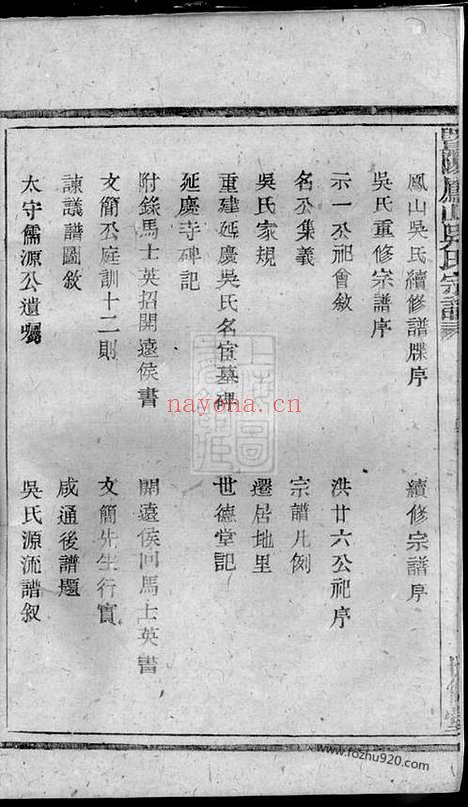 鳳山吳氏宗譜
鳳山吳氏續修譜牒序
續修宗譜序
吳氏重修宗譜序
示一公祀會敘
洪廿六公祀序
名公集義
宗譜凡例
吳氏家規
遷居地里
重建延慶吳氏名宦墓碑
世德堂記
延慶寺碑記
附錄馬士英招開遠侯書
開遠侯回馬士英書
文簡公庭訓十二則
文簡先生行實
諫議譜圖敘
咸通後譜題
太守儒源公遺囑
吳氏源流譜敘
nayona.cn
www.fozhu920.com